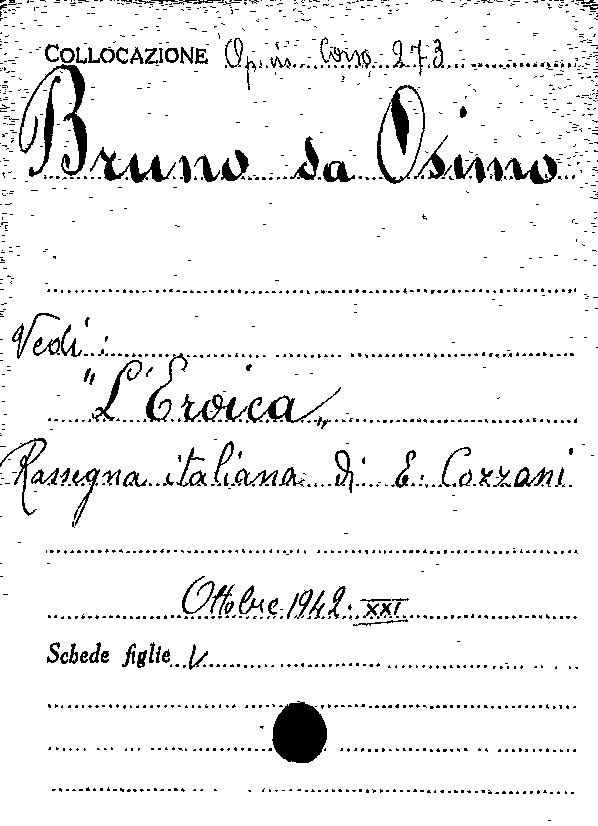 COLLOCAZIONE Op. in Cons. 273
Bruno da Osimo
Vedi:
"L'Eroica"
Rassegna italiana di E. Cozzani
Ottobre 1942. XXI
Schede figlie V